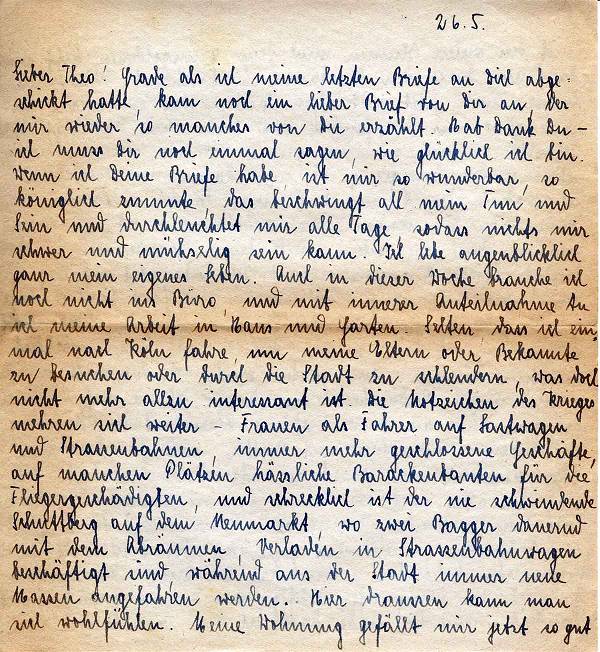 26.5.
Lieber Theo! Grade als ich meine letzten Briefe an Dich abge-
schickt hatte, kam noch ein lieber Brief von Dir an, der
mir wieder so manches von Dir erzählt. Hab Dank Du –
ich muss Dir noch einmal sagen, wie glücklich ich bin.
Wenn ich Deine Briefe habe, ist mir so wunderbar, so
königlich zumute, das beschwingt all mein Tun und
Sein und durchleuchtet mir alle Tage, sodass nichts mir
schwer und mühselig sein kann. Ich lebe augenblicklich
ganz mein eigenes Leben. Auch in dieser Woche brauche ich
noch nicht ins Büro, und mit innerer Anteilnahme tu
ich meine Arbeit in Haus und Garten. Selten, dass ich ein-
mal nach Köln fahre, um meine Eltern oder Bekannte
zu besuchen oder durch die Stadt zu schlendern, was doch
nicht mehr allzu interessant ist. Die Notzeichen des Krieges
mehren sich weiter – Frauen als Fahrer auf Lastwagen
und Strassenbahnen, immer mehr geschlossene Geschäfte,
auf manchen Plätzen hässliche Barackenbauten für die
Fliegergeschädigten, und schrecklich ist der nie schwindende
Schuttberg auf dem Neumarkt, wo zwei Bagger dauernd
mit dem Abräumen, Verladen in Strassenbahnwagen
beschäftigt sind, während aus der Stadt immer neue
Massen angefahren werden.. Hier draussen kann man
sich wohlfühlen. Meine Wohnung gefällt mir jetzt so gut